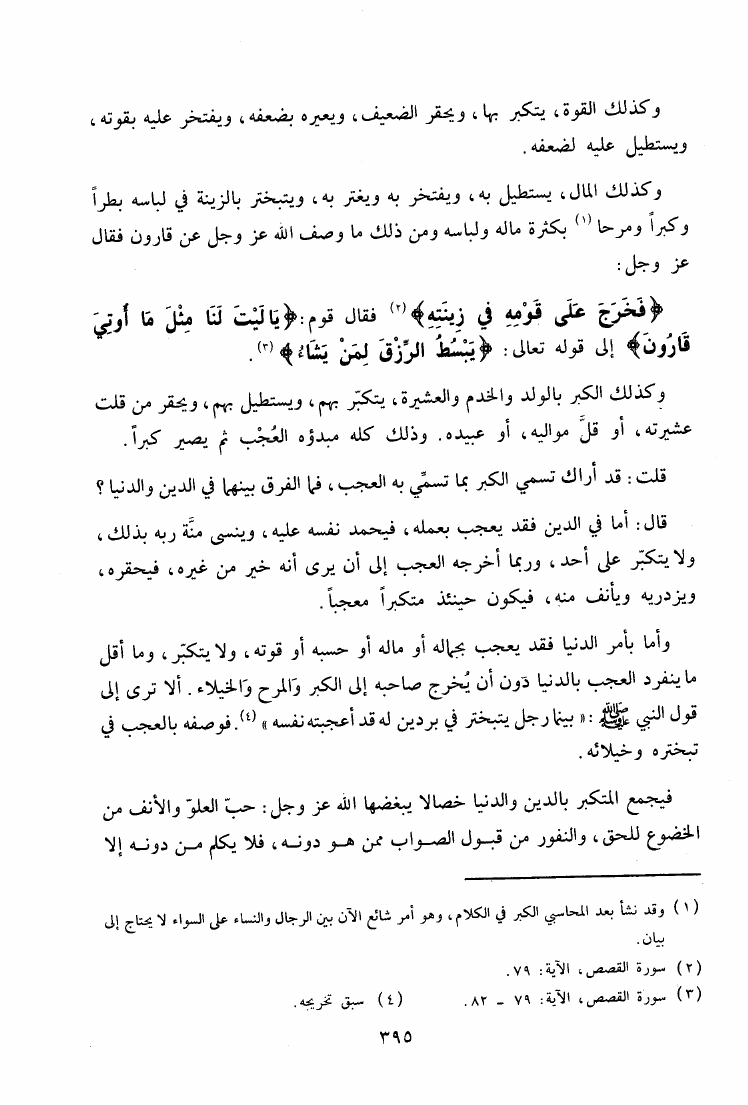 وكذلك القوة، يتكبر بها، ويحقر الضعيف، ويعيره بضعفه، ويفتخر عليه بقوته،
ويستطيل عليه لضعفه.
وكذلك المال، يستطيل به، ويفتخر به ويغتر به، ويتبختر بالزينة في لباسه بطراً
وكبراً ومرحا (١) بكثرة ماله ولباسه ومن ذلك ما وصف الله عز وجل عن قارون فقال
عز وجل:
﴿فَخَرَجَ عَلَى قَوْمِهِ في زِينَتِهِ﴾ (٢) فقال قوم: ﴿يَا لَيْتَ لَنَا مِثْلَ مَا أُوتِيَ
قَارُونَ﴾ إلى قوله تعالى: ﴿يَبْسُطُ الرِّزْقَ لِمَنْ يَشَاءُ﴾ (٣).
وكذلك الكبر بالولد والخدم والعشيرة، يتكبّر بهم، ويستطيل بهم، ويحقر من قلت
عشيرته، أو قلَّ مواليه، أو عبيده. وذلك كله مبدؤه العُجْب ثم يصير كبراً.
قلت: قد أراك تسمي الكبر بما تسمِّي به العجب، فما الفرق بينهما في الدين والدنيا؟
قال: أما في الدين فقد يعجب بعمله، فيحمد نفسه عليه، وينسى منَّة ربه بذلك،
ولا يتكبّر على أحد، وربما أخرجه العجب إلى أن يرى أنه خير من غيره، فيحقره،
ويزدريه ويأنف منه، فيكون حينئذ متكبراً معجباً.
وأما بأمر الدنيا فقد يعجب بجماله أو ماله أو حسبه أو قوته، ولا يتكبّر، وما أقل
ما ينفرد العجب بالدنيا دون أن يُخرج صاحبه إلى الكبر والمرح والخيلاء. ألا ترى إلى
قول النبي ﷺ: «بينما رجل يتبختر في بردين له قد أعجبته نفسه» (٤). فوصفه بالعجب في
تبختره وخيلائه.
فيجمع المتكبر بالدين والدنيا خصالا يبغضها الله عز وجل: حبّ العلوّ والأنف من
الخضوع للحق، والنفور من قبول الصواب ممن هو دونه، فلا يكلم من دونه إلا
(١) وقد نشأ بعد المحاسبي الكبر في الكلام، وهو أمر شائع الآن بين الرجال والنساء على السواء لا يحتاج إلى
بيان.
(٢) سورة القصص، الآية: ٧٩.
(٣) سورة القصص، الآية: ٧٩ - ٨٢. (٤) سبق تخريجه.
٣٩٥